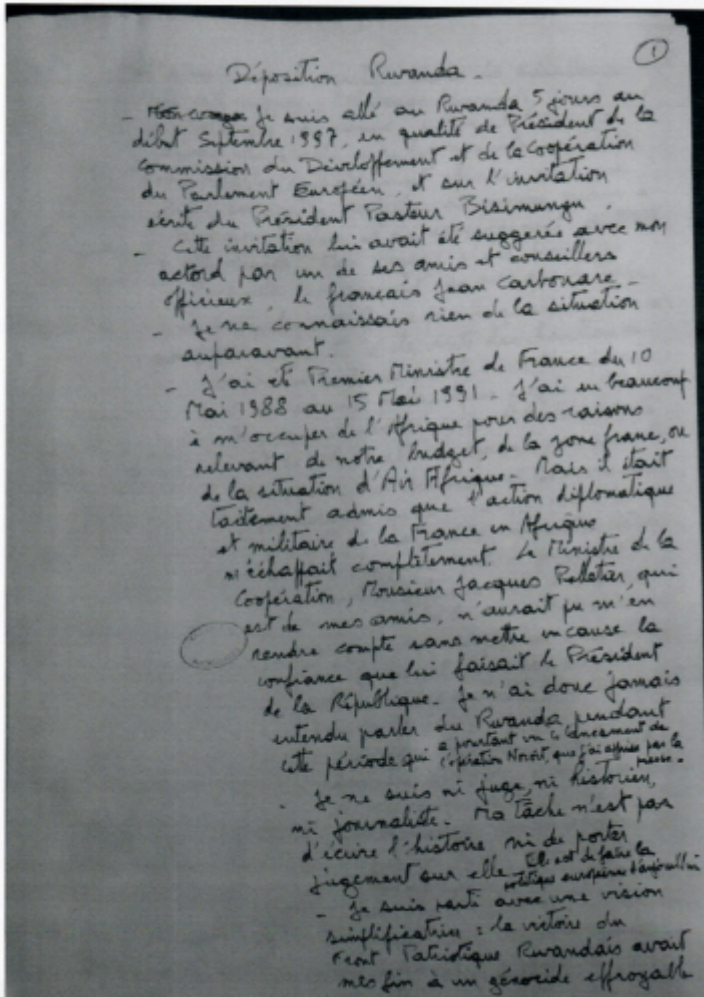 1
Déposition Rwanda.
- Je suis allé au Rwanda 5 jours au
début Septembre 1997, en qualité de Président de la
Commission du Développement et de la Coopération
du Parlement Européen, et sur l'invitation
écrite du Président Pasteur Bisimungu.
- Cette invitation lui avait été suggérée avec mon
accord par un de ses amis et conseillers
officieux, le français Jean Carbonare -
- Je ne connaissais rien de la situation
auparavant.
- J'ai été Premier Ministre de France du 10
Mai 1988 au 15 Mai 1991 - J'ai eu beaucoup
à m'occuper de l'Afrique pour des raisons
relevant de notre budget, de la zone franc, ou
de la situation d'Air Afrique - Mais il était
tacitement admis que l'action diplomatique
et militaire de la France en Afrique
m'échappait complètement. Le Ministre de la
Coopération, Monsieur Jacques Pelletier, qui
est de mes amis, n'aurait pu m'en
rendre compte sans mettre en cause la
confiance que lui faisait le Président
de la République - Je n'ai donc jamais
entendu parler du Rwanda pendant
cette période qui a pourtant vu le lancement de
l'opération Noroît, que j'ai apprise par la
presse.
- Je ne suis ni juge, ni historien,
ni journaliste - Ma tâche n'est pas
d'écrire l'histoire ni de porter
jugement sur elle - Elle est de faire la
politique européenne d'aujourd'hui
- Je suis parti avec une vision
simplificatrice : la victoire du
Front Patriotique Rwandais avait
mis fin à un génocide effroyable